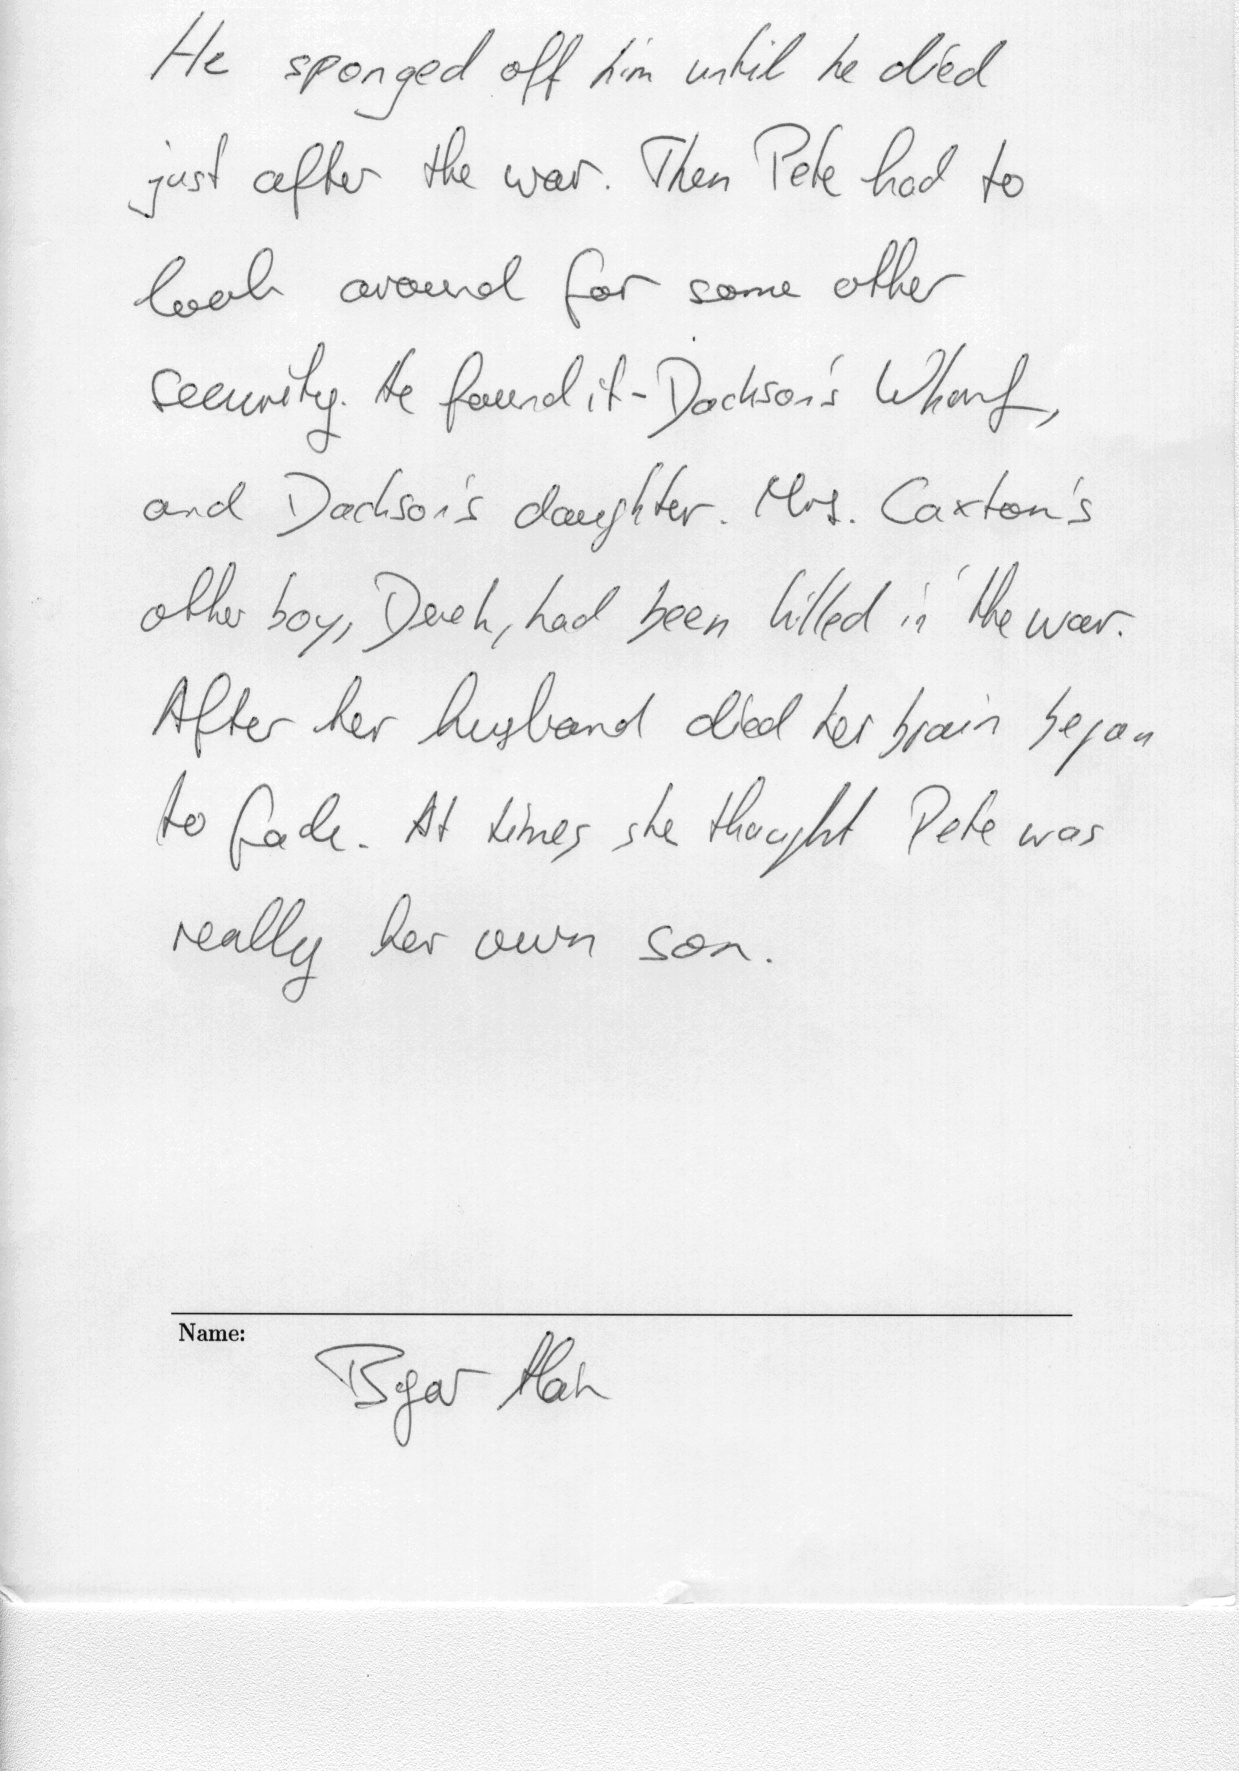 He sponged off him until he died
just after the war. Then Pete had to
look around for some other
security. He found it - Dockson's Wharf,
and Dockson's daughter. Mrs. Caxton's
other boy, Derek, had been killed in the war.
After her husband died her brain began
to fade. At times she thought Pete was
really her own son.
Name: